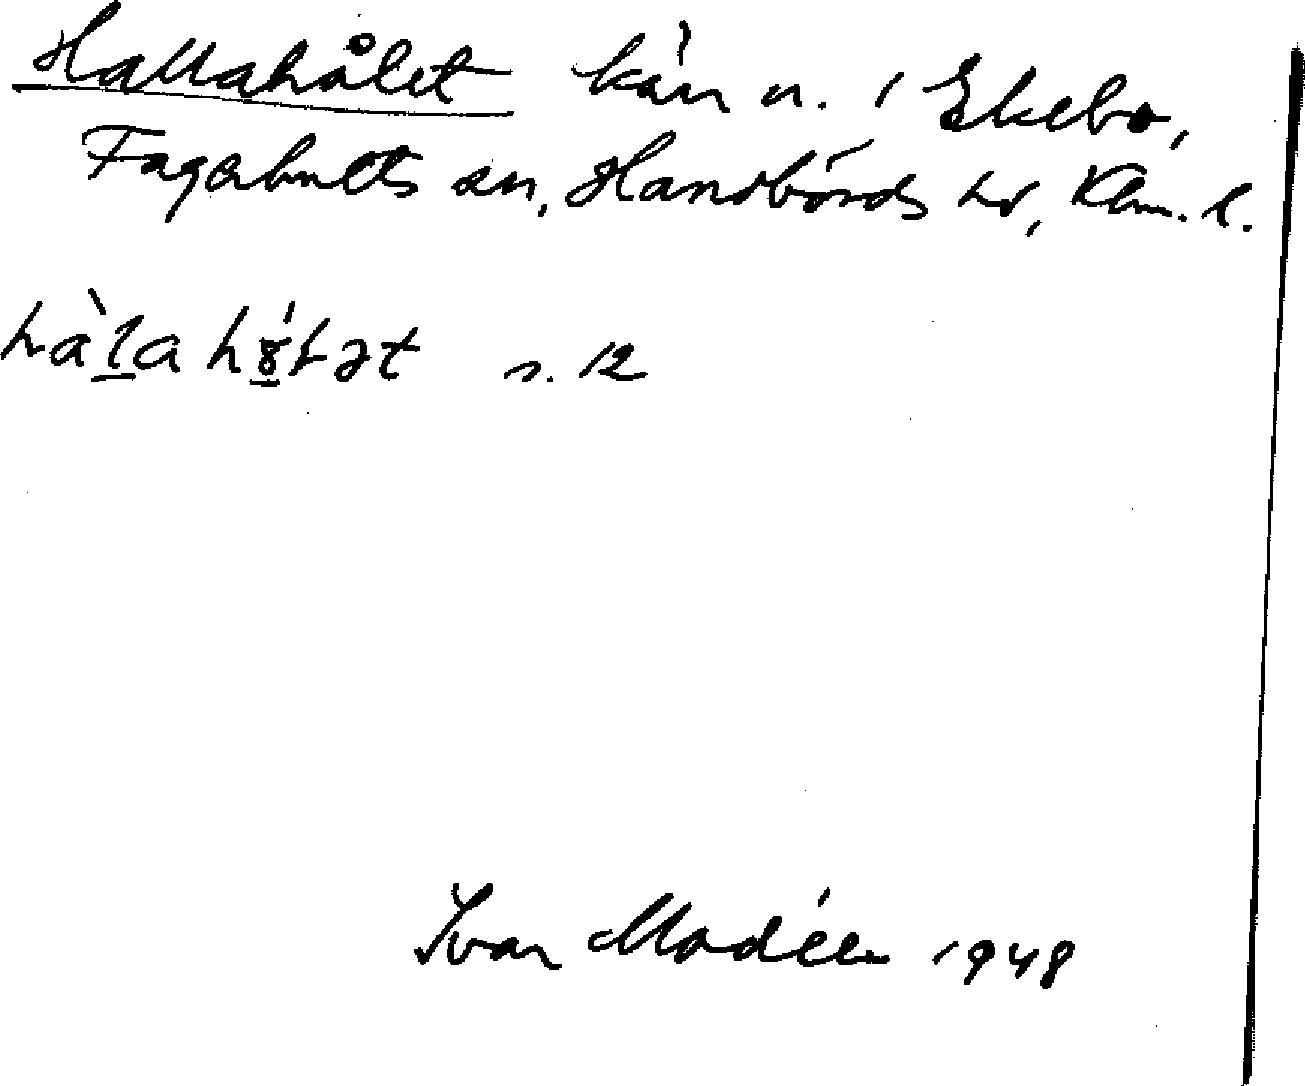 Hallahålet kärr n. i Ekebo,
Fagerhults sn, Handbörds hd, Klm. l.
hàl̠a hȣ́ɫət s. 12
Ivar Modéer 1948